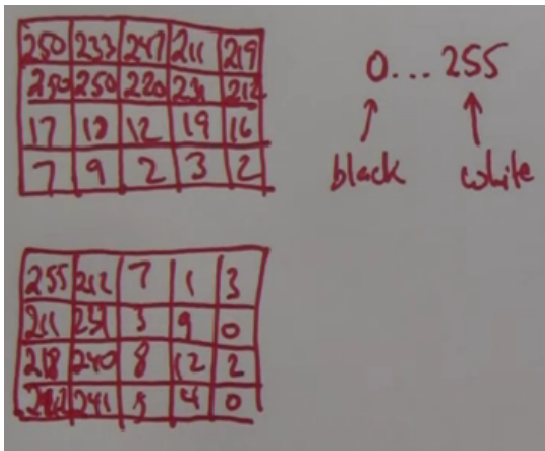 250 233 247 211 219
250 250 220 231 212
17 18 12 19 16
7 9 2 3 2
0...255
black white
255 212 7 1 3
211 3 9 0
218 240 8 12 2
241 5 4 0